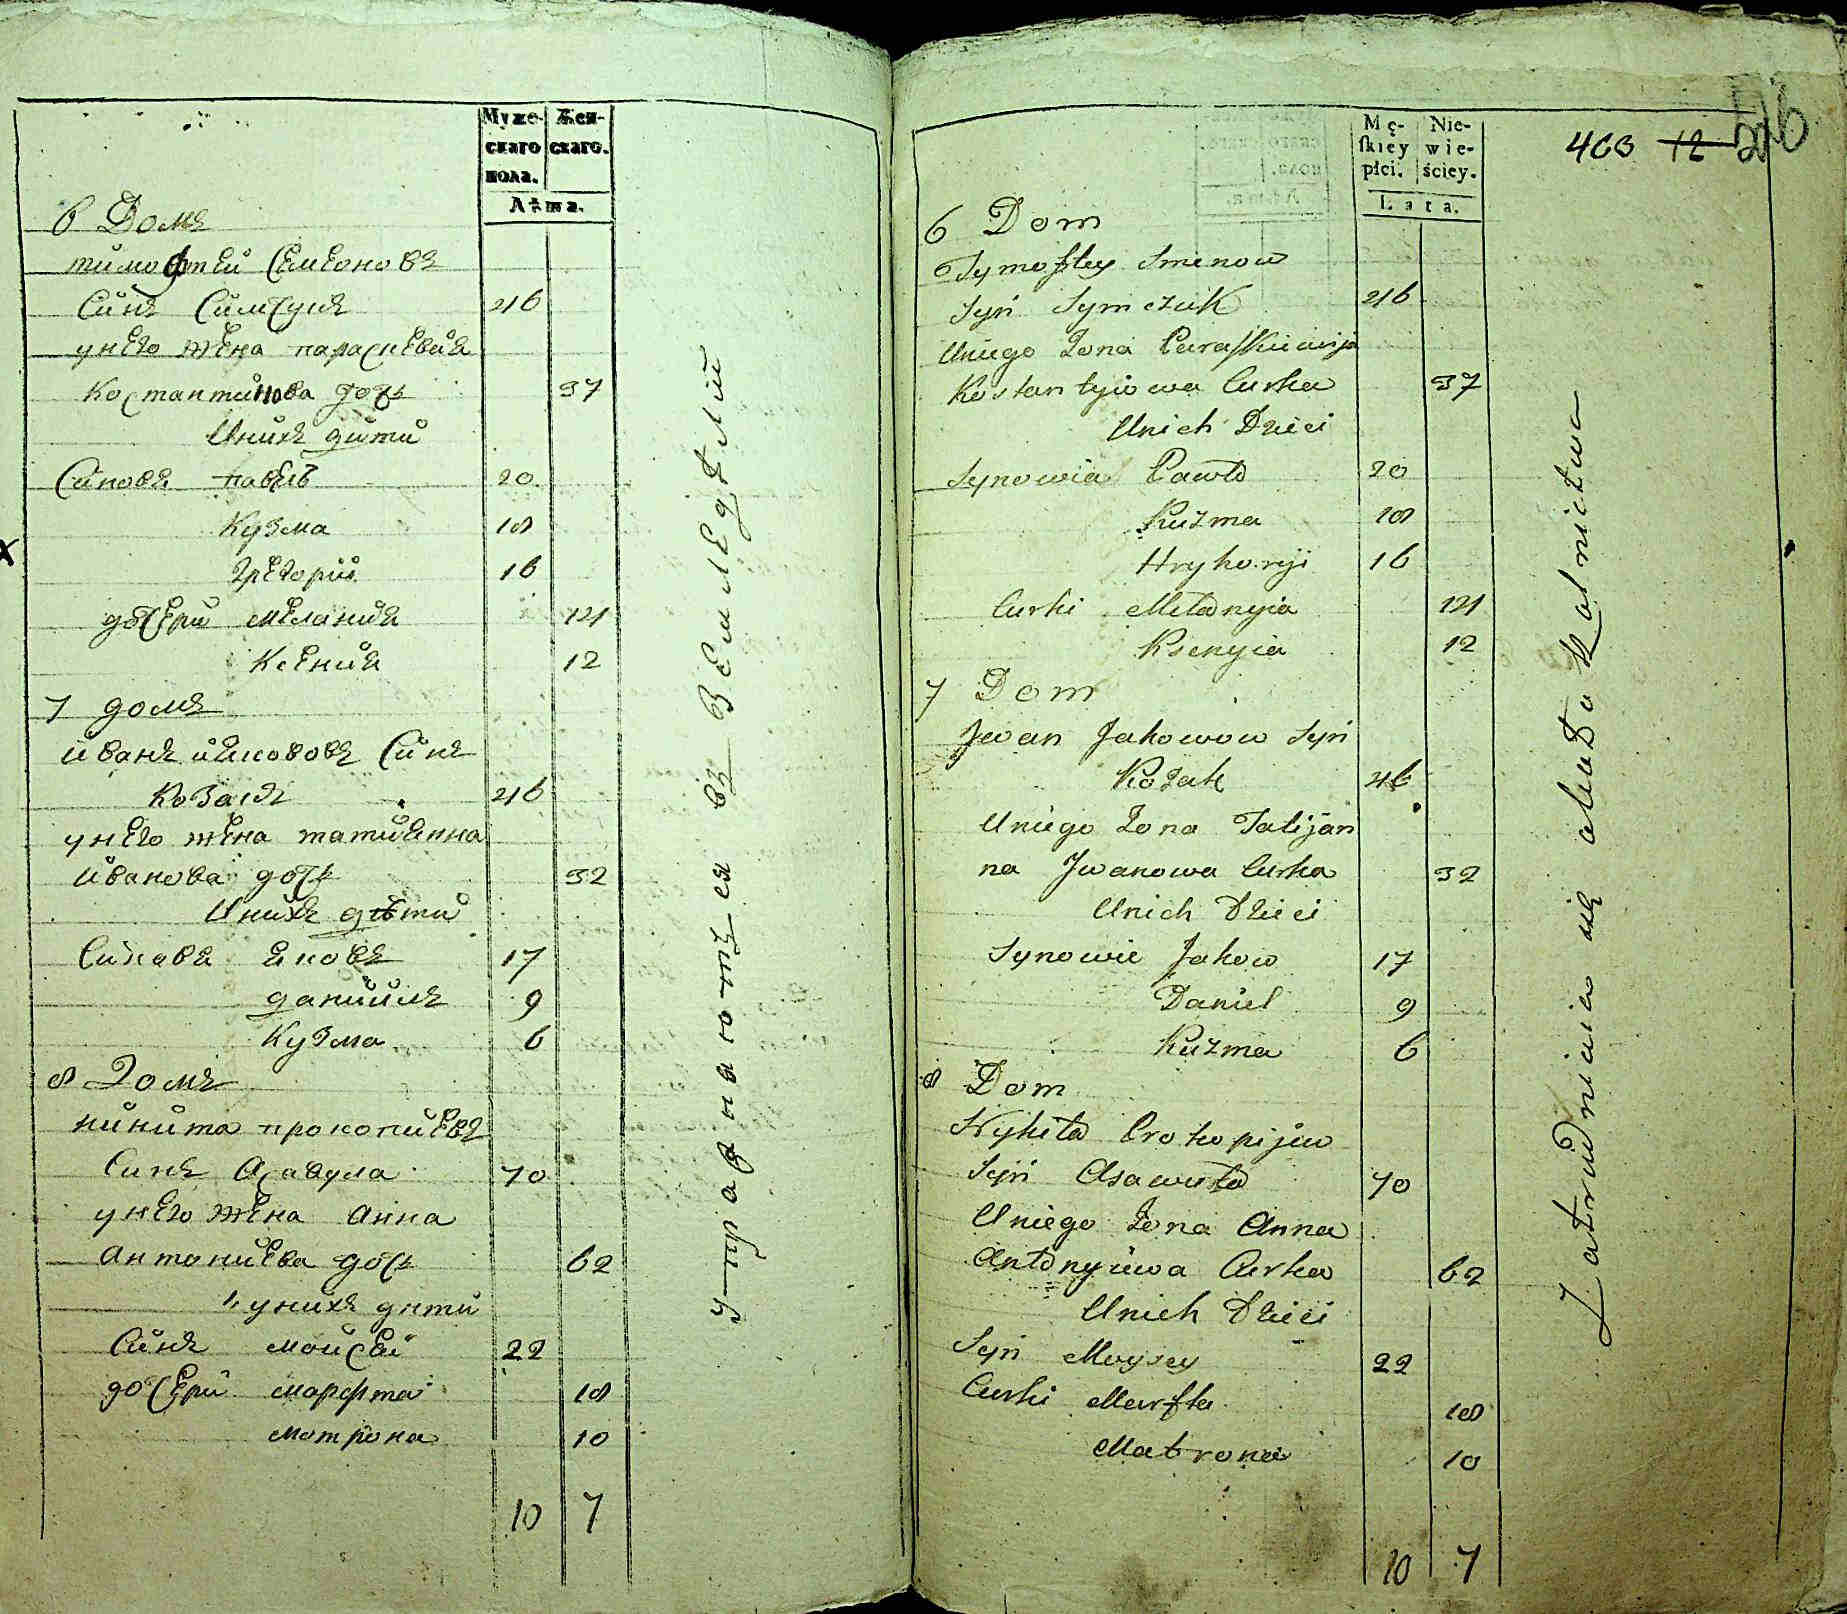 Муже-
скаго
пола.
Жен-
скаго.
Лѣта.
6 Домъ
тимофтей Семеновъ
Синъ Симчукъ 46
унего жена параскевия
Костантинова дочъ 37
Унихъ дити
Синовя павелъ 20
Кузма 18
Григорий 16
дочери мелания 14
Ксения 12
7 домъ
иванъ иекововъ Синъ
Козакъ 46
унего жена татиянна
иванова дочъ 32
Унихъ дѣти
Синовя яковъ 17
даниилъ 9
Кузма 6
8 Домъ
никита прокопиевъ
Синъ Асавула 70
унего жена анна
антониева дочъ 62
унихъ дити
Синъ мойсей 22
дочери марфта 18
мотрона 10
10 7
упражнаютъся въ Земледѣлий
Mę-
skiey
płci.
Nie-
wie-
ściey.
Lata.
403 12
6 Dom
Tymoftey Smenow
Syn Symczuk 46
Uniego Żona Paraskiewija
Kostantyiowa Curka 37
Unich Dzieci
Synowia Pawło 20
Kuzma 18
Hryhoryi 16
Curki Mełanyia 14
Ksenyia 12
7 Dom
Jwan Jakowow Syn
Kozak 46
Uniego Żona Tatijan
na Jwanowa Curka 32
Unich Dzieci
Synowie Jakow 17
Daniel 9
Kuzma 6
8 Dom
Nykita Prokopijew
Syn Asawuła 70
Uniego Żona Anna
Antonyiewa Curka 62
Unich Dzieci
Syn Moysey 22
Curki Marfta 18
Matrona 10
10 7
Zatrudniaia się około Rolnictwa